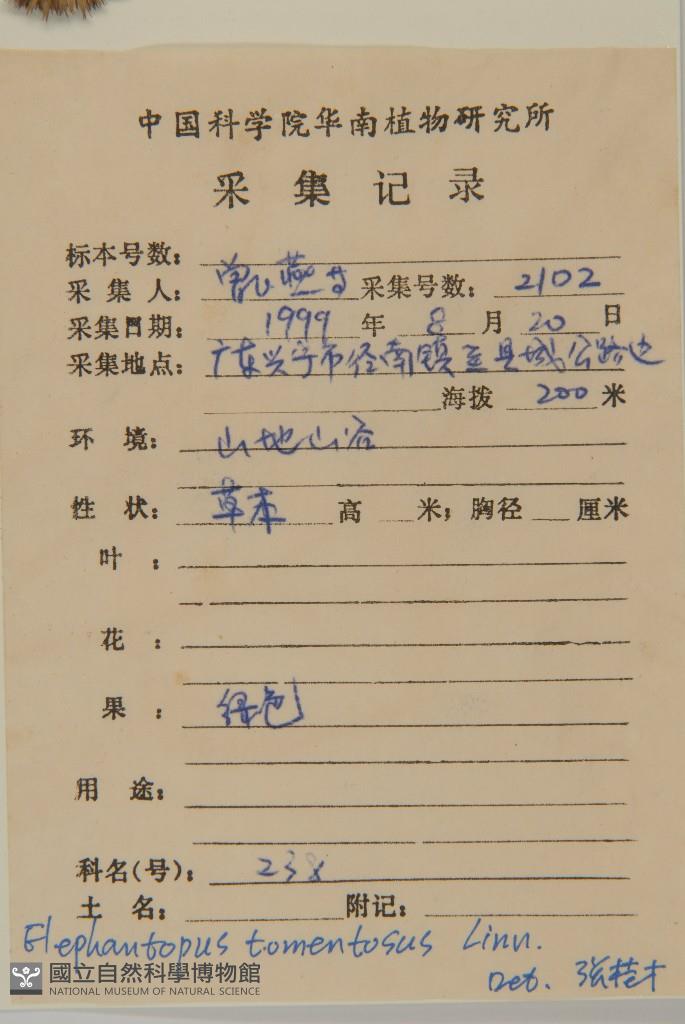 中国科学院华南植物研究所
采集记录
标本号数:
采集人: 曾 采集号数: 2102
采集日期: 1999 年 8 月 20 日
采集地点: 广东兴宁市径南镇至县城公路边
海拨 200 米
环境: 山地山谷
性状: 草本 高 米; 胸径 厘米
叶:
花:
果: 绿色
用途:
科名(号): 238
土名: 附记:
Elephantopus tomentosus Linn.
Det. 张桂才
國立自然科學博物館
NATIONAL MUSEUM OF NATURAL SCIENCE